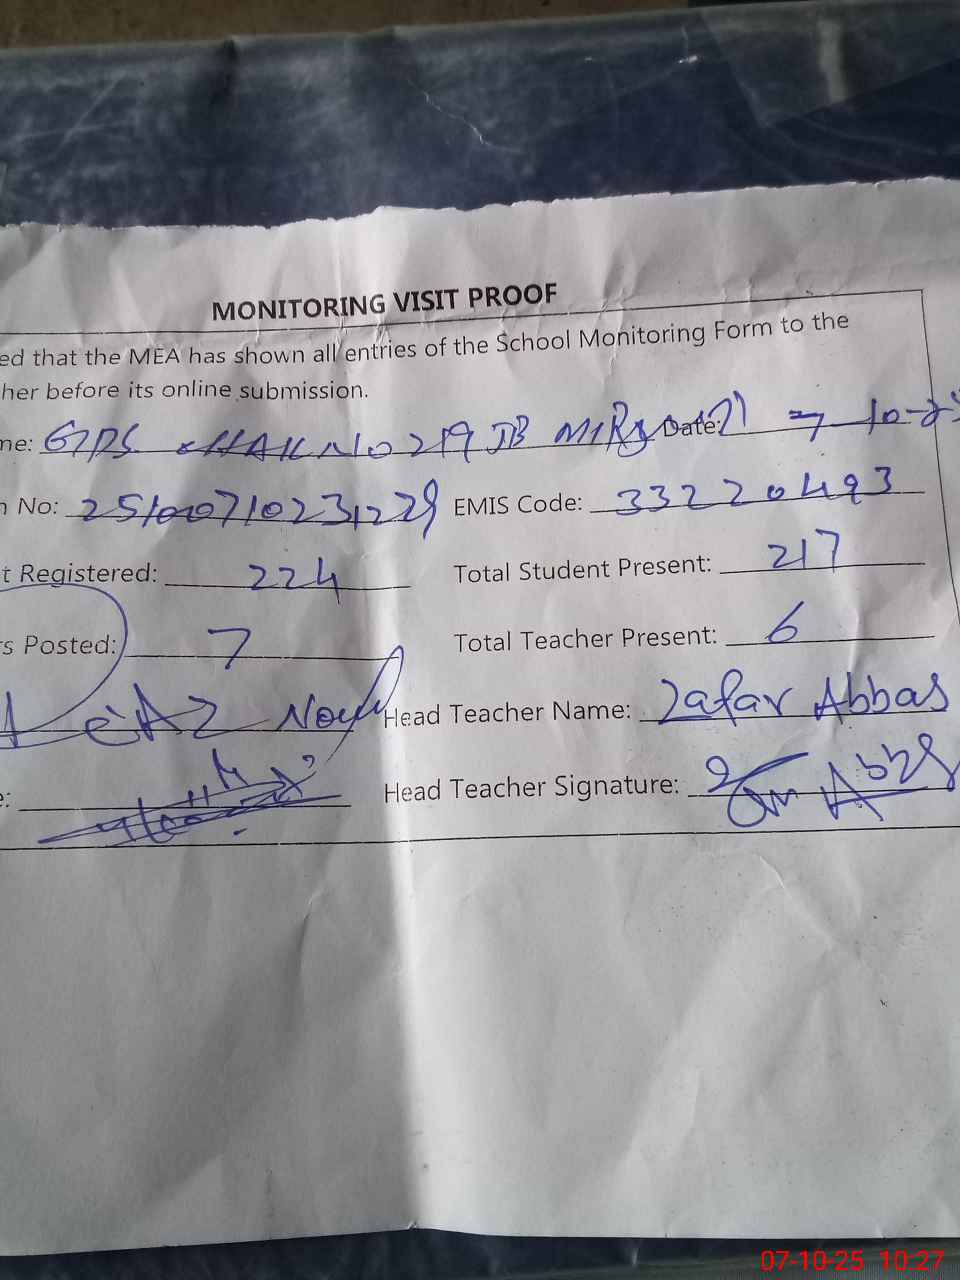 MONITORING VISIT PROOF
ed that the MEA has shown all entries of the School Monitoring Form to the
her before its online submission.
me: GPS CHAK NO 219 JB Date: 7-10-25
No: EMIS Code: 33220493
t Registered: 224 Total Student Present: 217
s Posted: 7 Total Teacher Present: 6
Head Teacher Name: Zafar Abbas
e: Head Teacher Signature:
07-10-25 10:27